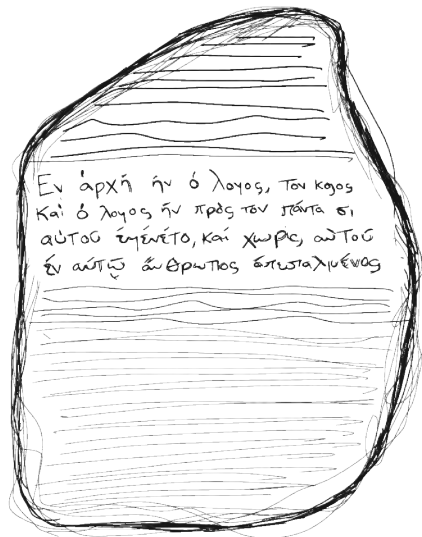 Εν ἀρχῇ ἦν ὁ λογος, τον κολος
Καὶ ὁ λογος ἦν πρὸς τον πάντα σι
αὐτοῦ ἐγένετο, καὶ χωρις αὐτοῦ
ἐν αὐτῷ ἄνθρωπος